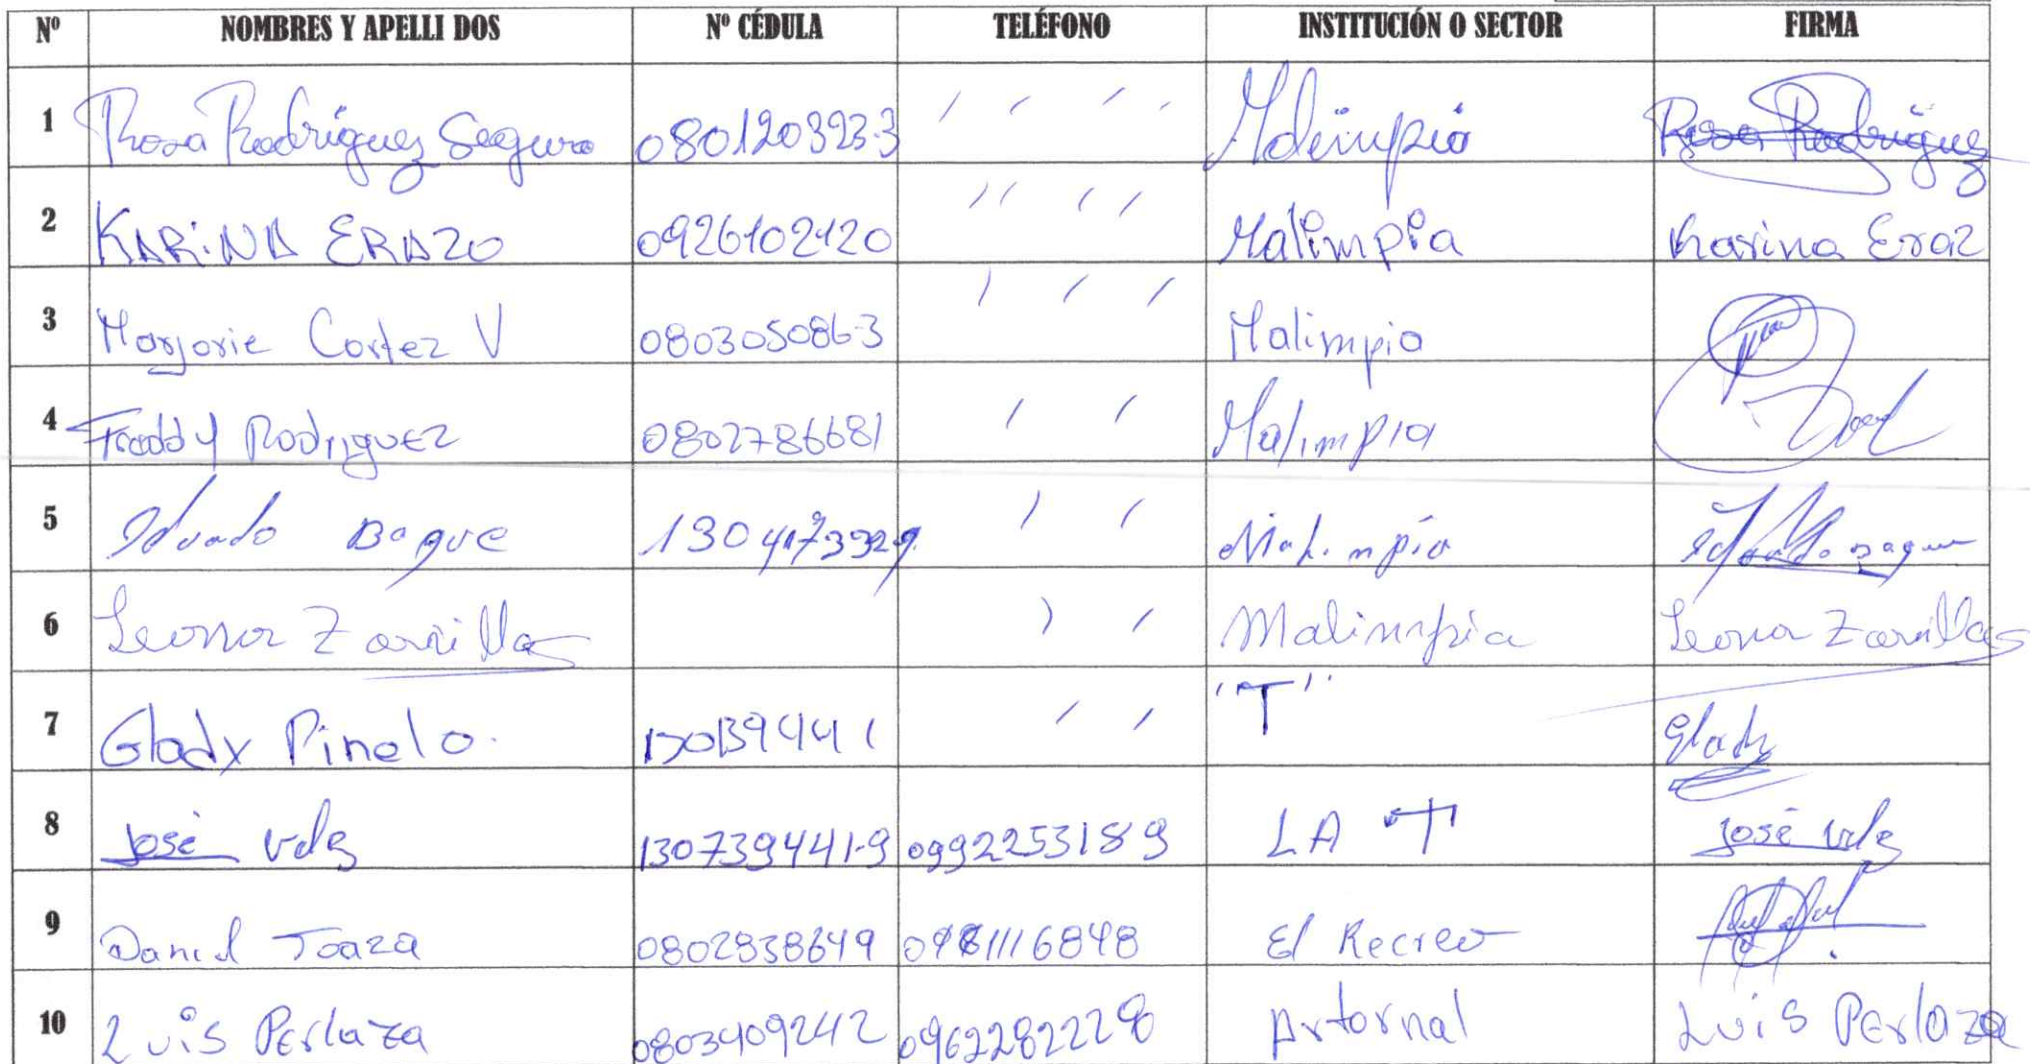 Nº NOMBRES Y APELLI DOS Nº CÉDULA TELÉFONO INSTITUCIÓN O SECTOR FIRMA
1 Rosa Rodriguez Seguro 080120323-3 / / / / Malimpia Rosa Rodriguez
2 KARINA ERAZO 0926102120 / / / / Malimpia Karina Eraz
3 Marjorie Cortez V 080305086-3 / / / Malimpia
4 Freddy Rodriguez 0802786681 / / Malimpia
5 Eduardo Bague / / Malimpia Eduardo Bague
6 Leonor Zarrillas / / Malimpia Leonor Zarrillas
7 Gladx Pinelo. / / "T" Glady
8 José Velz 130739441-9 0992253189 LA T José Velz
9 Daniel Joaza 0802838649 0981116848 El Recreo
10 Luis Perlaza 0803409242 0962282228 Artornal Luis Perlaza